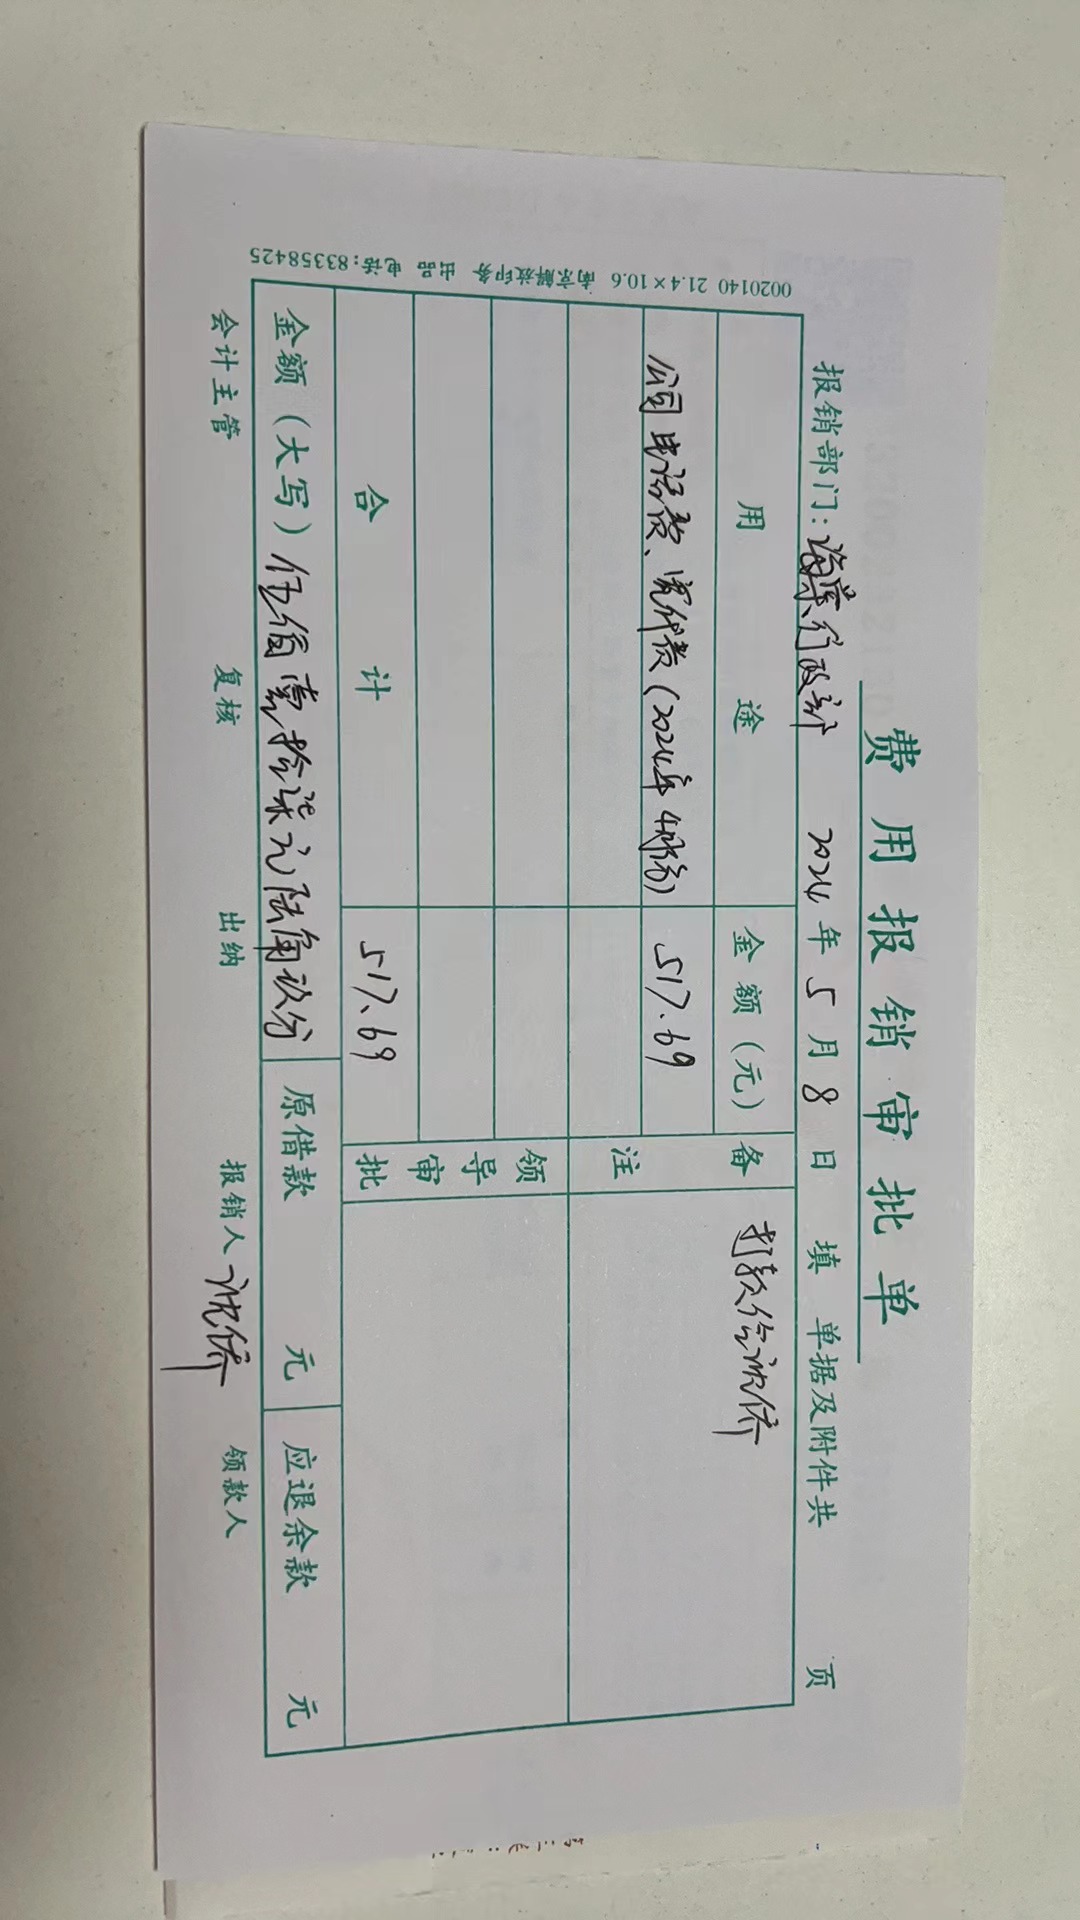 费用报销审批单
报销部门：海棠行政部 2024年5月8日填 单据及附件共 页
用途 金额（元） 备注 打款给沈侨
公司电话费、宽带费（2024年4月份） 517.69
领导审批
合计 517.69
金额（大写）伍佰壹拾柒元陆角玖分 原借款 元 应退余款 元
会计主管 复核 出纳 报销人 沈侨 领款人
0020140 21.4×10.6 南京解放印务 出品 电话：83358425